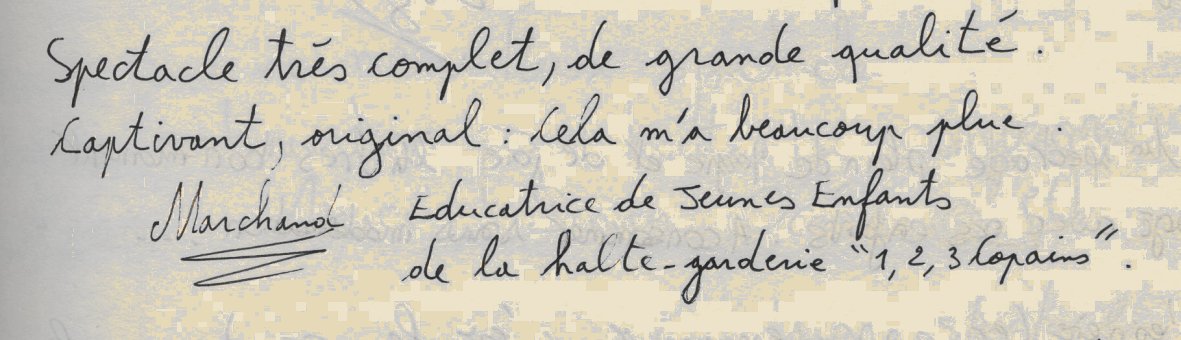 Spectacle très complet, de grande qualité.
Captivant, original : Cela m'a beaucoup plue.
Marchand Educatrice de Jeunes Enfants
de la halte-garderie "1, 2, 3 Copains".